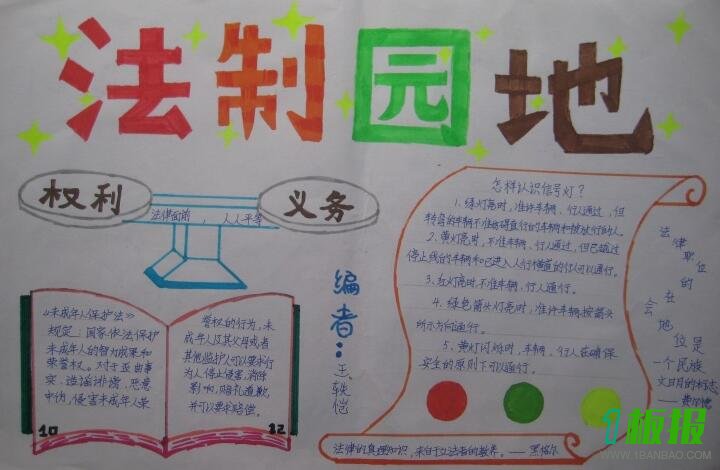 法制园地
权利
义务
法律面前，人人平等
《未成年人保护法》
规定：国家依法保护
未成年人的智力成果和
荣誉权。对歪曲事
实、造谣诽谤、恶意
中伤，侵害未成年人荣
10
誉权的行为，未
成年人及其父母或者
其他监护人可以要求行
为人停止侵害，消除
影响，赔礼道歉，
并可以要求赔偿。
12
编者：王轶恺
怎样认识信号灯？
1、绿灯亮时，准许车辆、行人通过，但
转弯的车辆不准妨碍直行的车辆和被放行的行人。
2、黄灯亮时，不准车辆、行人通过，但已越过
停止线的车辆和已进入人行横道的行人可以通行。
3、红灯亮时，不准车辆、行人通行。
4、绿色箭头灯亮时，准许车辆按箭头
所示方向通行。
5、黄灯闪烁时，车辆、行人在确保
安全的原则下可以通行。
法律的真理知识，来自于立法者的教养。——黑格尔
法律职位的
在
会
地位是
一个民族
文明的标志
——费尔德
1板报
WWW.1BANBAO.COM